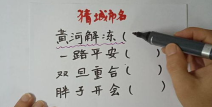 猜城市名
黄河解冻(
一路平安(　)
双旦重合(　)
胖子开会(　)